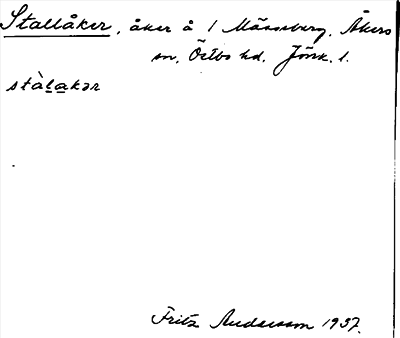 Stallåker, åker å 1 Mässeberg, Åkers
sn, Östbo hd. Jönk. l.
stàl̲a̲kər
Fritz Andersson 1937.